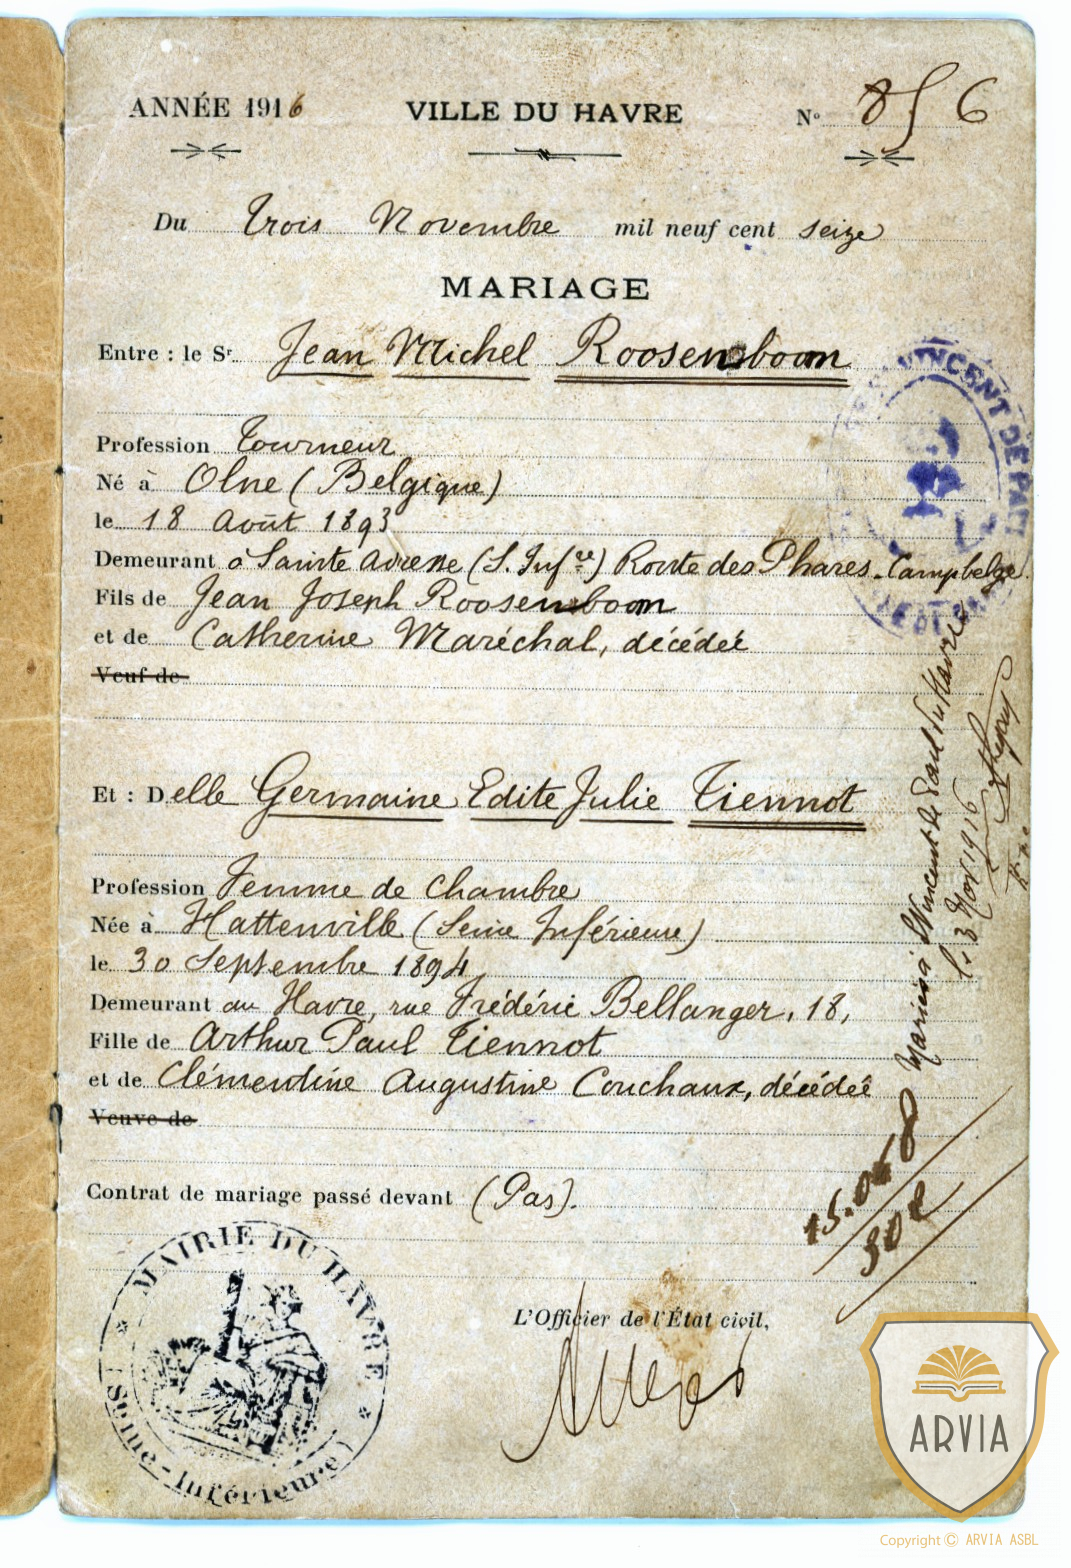 ANNÉE 1916
VILLE DU HAVRE
N° 856
Du Trois Novembre mil neuf cent seize
MARIAGE
Entre : le Sr. Jean Michel Roosenboom
Profession Tourneur
Né à Olne (Belgique)
le 18 Août 1893
Demeurant à Sainte Adresse (S. Infre) Route des Phares. Camp belge.
Fils de Jean Joseph Roosenboom
et de Catherine Maréchal, décédée
Veuf de
Et : Delle Germaine Edite Julie Tiennot
Profession Femme de Chambre
Née à Hattenville (Seine Inférieure)
le 30 Septembre 1894
Demeurant au Havre, rue Frédéric Bellanger, 18,
Fille de Arthur Paul Tiennot
et de Clémentine Augustine Couchaux, décédée
Veuve de
Contrat de mariage passé devant (Pas).
L'Officier de l'État civil,
St VINCENT DE PAUL
Mariés à St Vincent de Paul du Havre
le 3 Nov 1916
MAIRIE DU HAVRE
(Seine-Inférieure)
ARVIA
Copyright © ARVIA ASBL